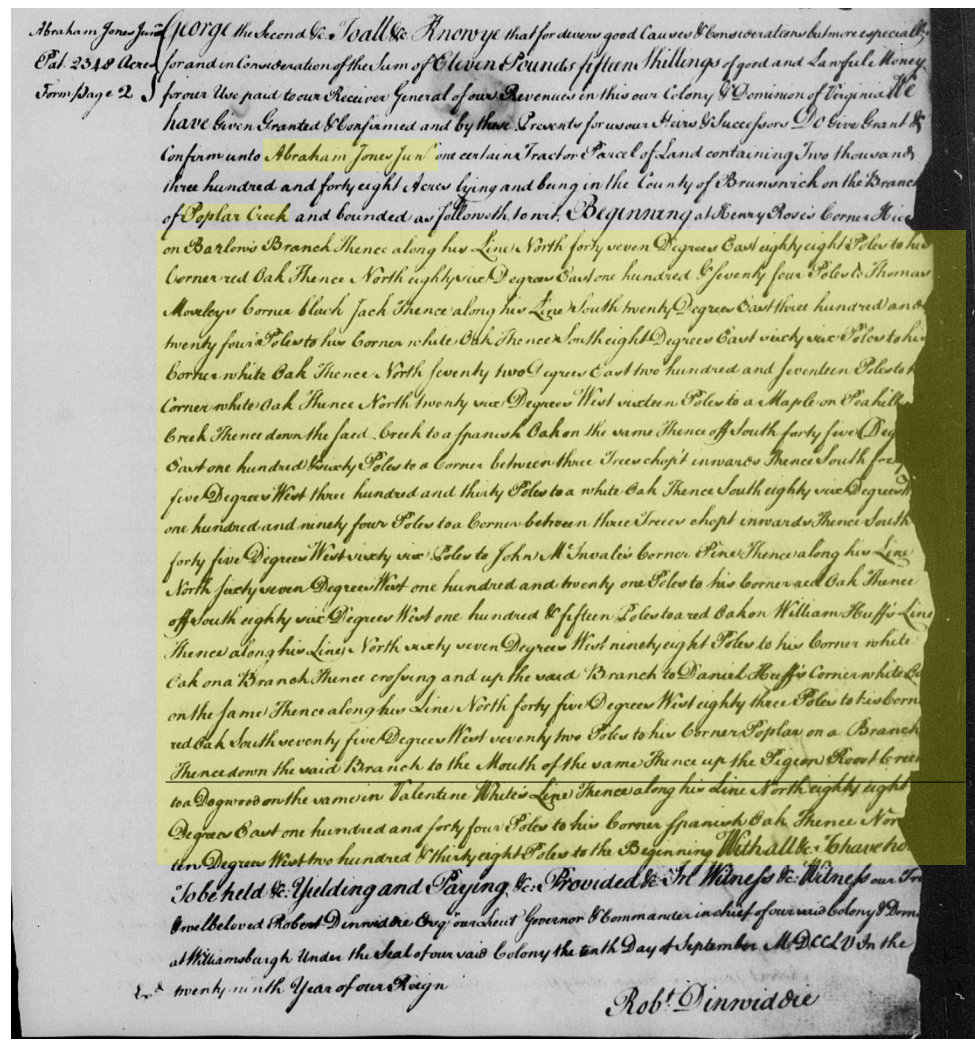 Abraham Jones Junr
Pat. 2348 Acres
Form page 2
George the Second &c. To all &c. Know ye that for divers good Causes & Considerations but more especially
for and in Consideration of the Sum of Eleven Pounds fifteen Shillings of good and Lawful Money
for our Use paid to our Receiver General of our Revenues in this our Colony & Dominion of Virginia We
have Given Granted & Confirmed and by these Presents for us our Heirs & Successors Do Give Grant &
Confirm unto Abraham Jones Junr one certain Tract or Parcel of Land containing Two thousand
three hundred and forty eight Acres lying and being in the County of Brunswick on the Branch
of Poplar Creek and bounded as followeth to wit, Beginning at Henry Rose's Corner
on Barlow's Branch Thence along his Line North forty seven Degrees East eighty eight Poles to his
Corner red Oak Thence North eighty six Degrees East one hundred & seventy four Poles to Thomas
Moseley's Corner black Jack Thence along his Line South twenty Degrees East three hundred and
twenty four Poles to his Corner white Oak Thence South eight Degrees East sixty six Poles to his
Corner white Oak Thence North seventy two Degrees East two hundred and seventeen Poles to
Corner white Oak Thence North twenty six Degrees West sixteen Poles to a Maple on Peahill
Creek Thence down the said Creek to a Spanish Oak on the same Thence off South forty five Deg
East one hundred & sixty Poles to a Corner between three Trees chop't inwards Thence South
five Degrees West three hundred and thirty Poles to a white Oak Thence South eighty six Degrees
one hundred and ninety four Poles to a Corner between three Trees chopt inwards Thence South
forty five Degrees West sixty six Poles to John McInvale's Corner Pine Thence along his Line
North sixty seven Degrees West one hundred and twenty one Poles to his Corner red Oak Thence
off South eighty six Degrees West one hundred & fifteen Poles to a red Oak on William Huff's Line
Thence along his Line North sixty seven Degrees West ninety eight Poles to his Corner white
Oak on a Branch Thence crossing and up the said Branch to Daniel Huff's Corner white
on the same Thence along his Line North forty five Degrees West eighty three Poles to his Corn
red Oak South seventy five Degrees West seventy two Poles to his Corner Poplar on a Branch
Thence down the said Branch to the Mouth of the same Thence up the Pigeon Roost Creek
to a Dogwood on the same in Valentine White's Line Thence along his Line North eighty eight
Degrees East one hundred and forty four Poles to his Corner Spanish Oak Thence Nor
ten Degrees West two hundred & thirty eight Poles to the Beginning With all &c. To have ho
To be held &c. Yielding and Paying &c. Provided &c. In Witness &c. Witness our Tru
& welbeloved Robert Dinwiddie Esqr our Lieut Governor & Commander in chief of our said Colony & Dom
at Williamsburgh Under the Seal of our said Colony the tenth Day of September MDCCLV In the
twenty ninth Year of our Reign
Robt. Dinwiddie